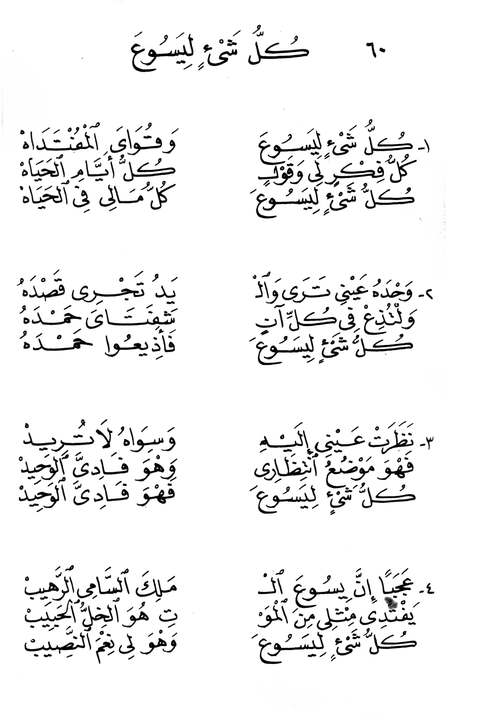 ٦٠ كُلُّ شَىْءٍ لِيَسُوعَ
١- كُلُّ شَىْءٍ لِيَسُوعَ وَقُوَاىَ ٱلْمُفْتَدَاهْ
كُلُّ فِكْرٍ لِى وَقَوْلٍ كُلُّ أَيَّامِ ٱلْحَيَاهْ
كُلُّ شَىْءٍ لِيَسُوعَ كُلُّ مَالِى فِى ٱلْحَيَاهْ
٢- وَحْدَهُ عَيْنِى تَرَى وَٱلْـ يَدُ تَجْرِى قَصْدَهُ
وَلْتُذِعْ فِى كُلِّ آتٍ شَفَتَاىَ حَمْدَهُ
كُلُّ شَىْءٍ لِيَسُوعَ فَأَذِيعُوا حَمْدَهُ
٣- نَظَرَتْ عَيْنِى إِلَيْهِ وَسِوَاهُ لَا تُرِيدْ
فَهْوَ مَوْضُعُ ٱنْتِظَارِى وَهْوَ فَادِىَّ ٱلْوَحِيدْ
كُلُّ شَىْءٍ لِيَسُوعَ فَهْوَ فَادِىَّ ٱلْوَحِيدْ
٤- عَجَبًا إِنَّ يَسُوعَ ٱلْـ مَلِكَ ٱلسَّامِى ٱلرَّهِيبْ
يَفْتَدِى مِثْلِى مِنَ ٱلْمَوْ تِ هُوَ ٱلْخِلُّ ٱلْحَبِيبْ
كُلُّ شَىْءٍ لِيَسُوعَ وَهْوَ لِى نِعْمَ ٱلنَّصِيبْ